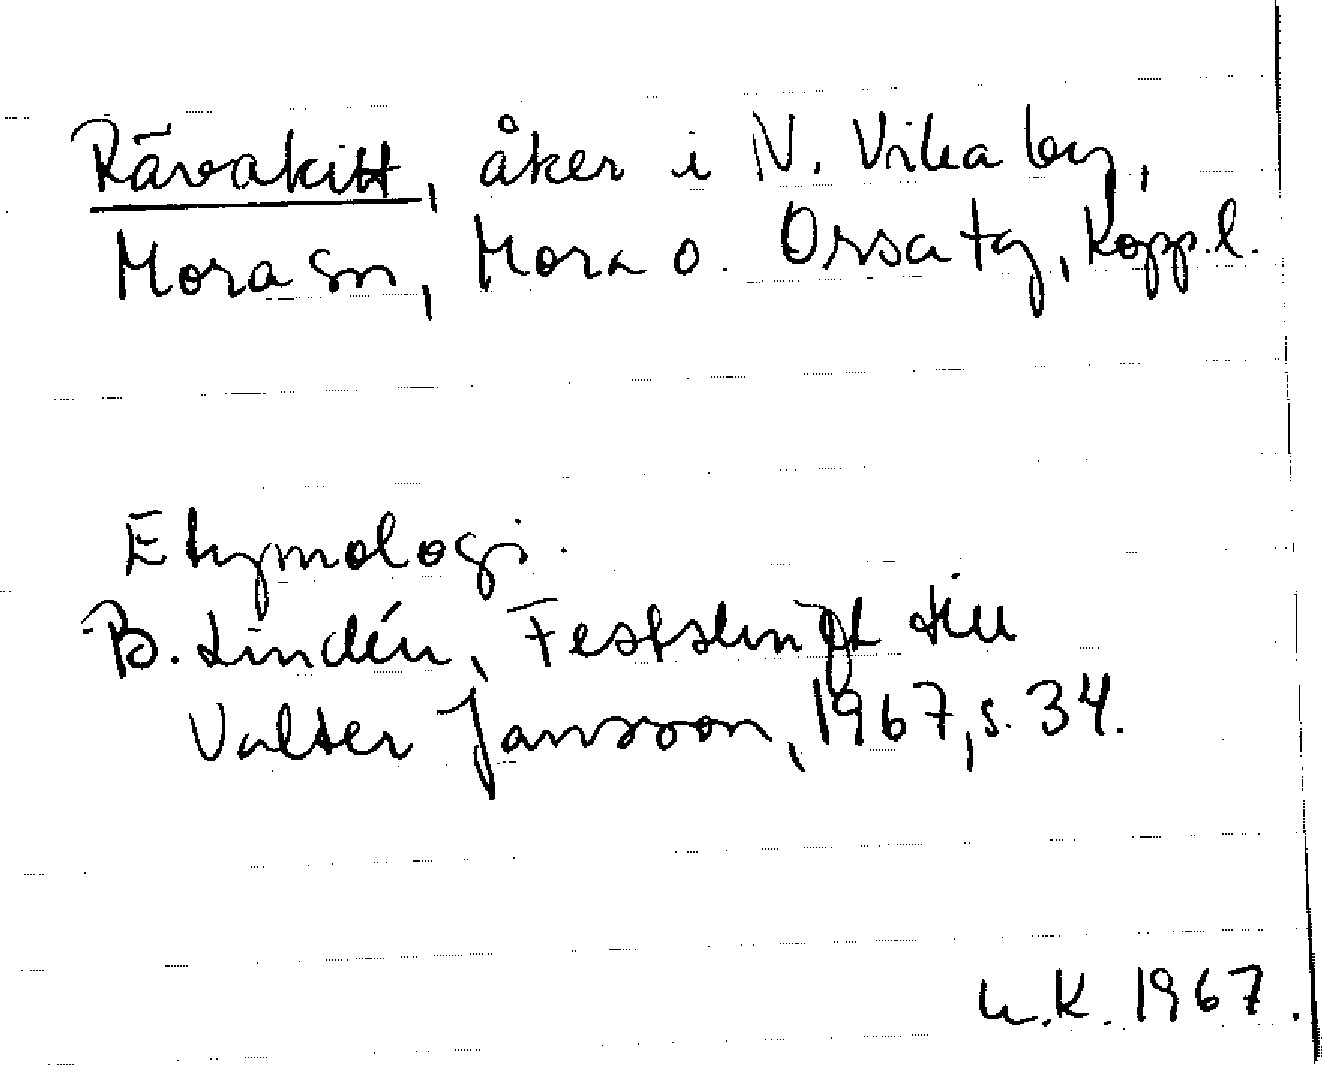 Rävakitt, åker i N. Vika by,
Mora sn, Mora o. Orsa tg, Kopp.l.
Etymologi.
B. Lindén, Festskrift till
Valter Jansson, 1967, s. 34.
K. 1967.